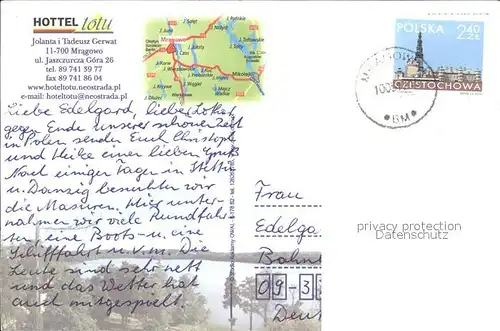 HOTTEL lotu
Jolanta i Tadeusz Gerwat
11-700 Mrągowo
ul. Jaszczurcza Góra 26
tel. 89 741 39 77
fax 89 741 86 04
www.hoteltotu.neostrada.pl
e-mail: hoteltotu@neostrada.pl
Mrągowo
Mikołajki
POLSKA 2,40 ZŁ
CZĘSTOCHOWA
BM
Liebe Edelgard, lieber Lothar
gegen Ende unserer schönen Zeit
in Polen senden Euch Christoph
und Heike einen lieben Gruß
Nach einigen Tagen in Stettin
u. Danzig besuchten wir
die Masuren. Hier unter-
nahmen wir viele Rundfahr-
ten eine Boots- u. eine
Schifffahrt u.v.m. Die
Leute sind sehr nett
und das Wetter hat
auch mitgespielt.
Frau
Edelga
Bahn
09-3
Deut
privacy protection
Datenschutz